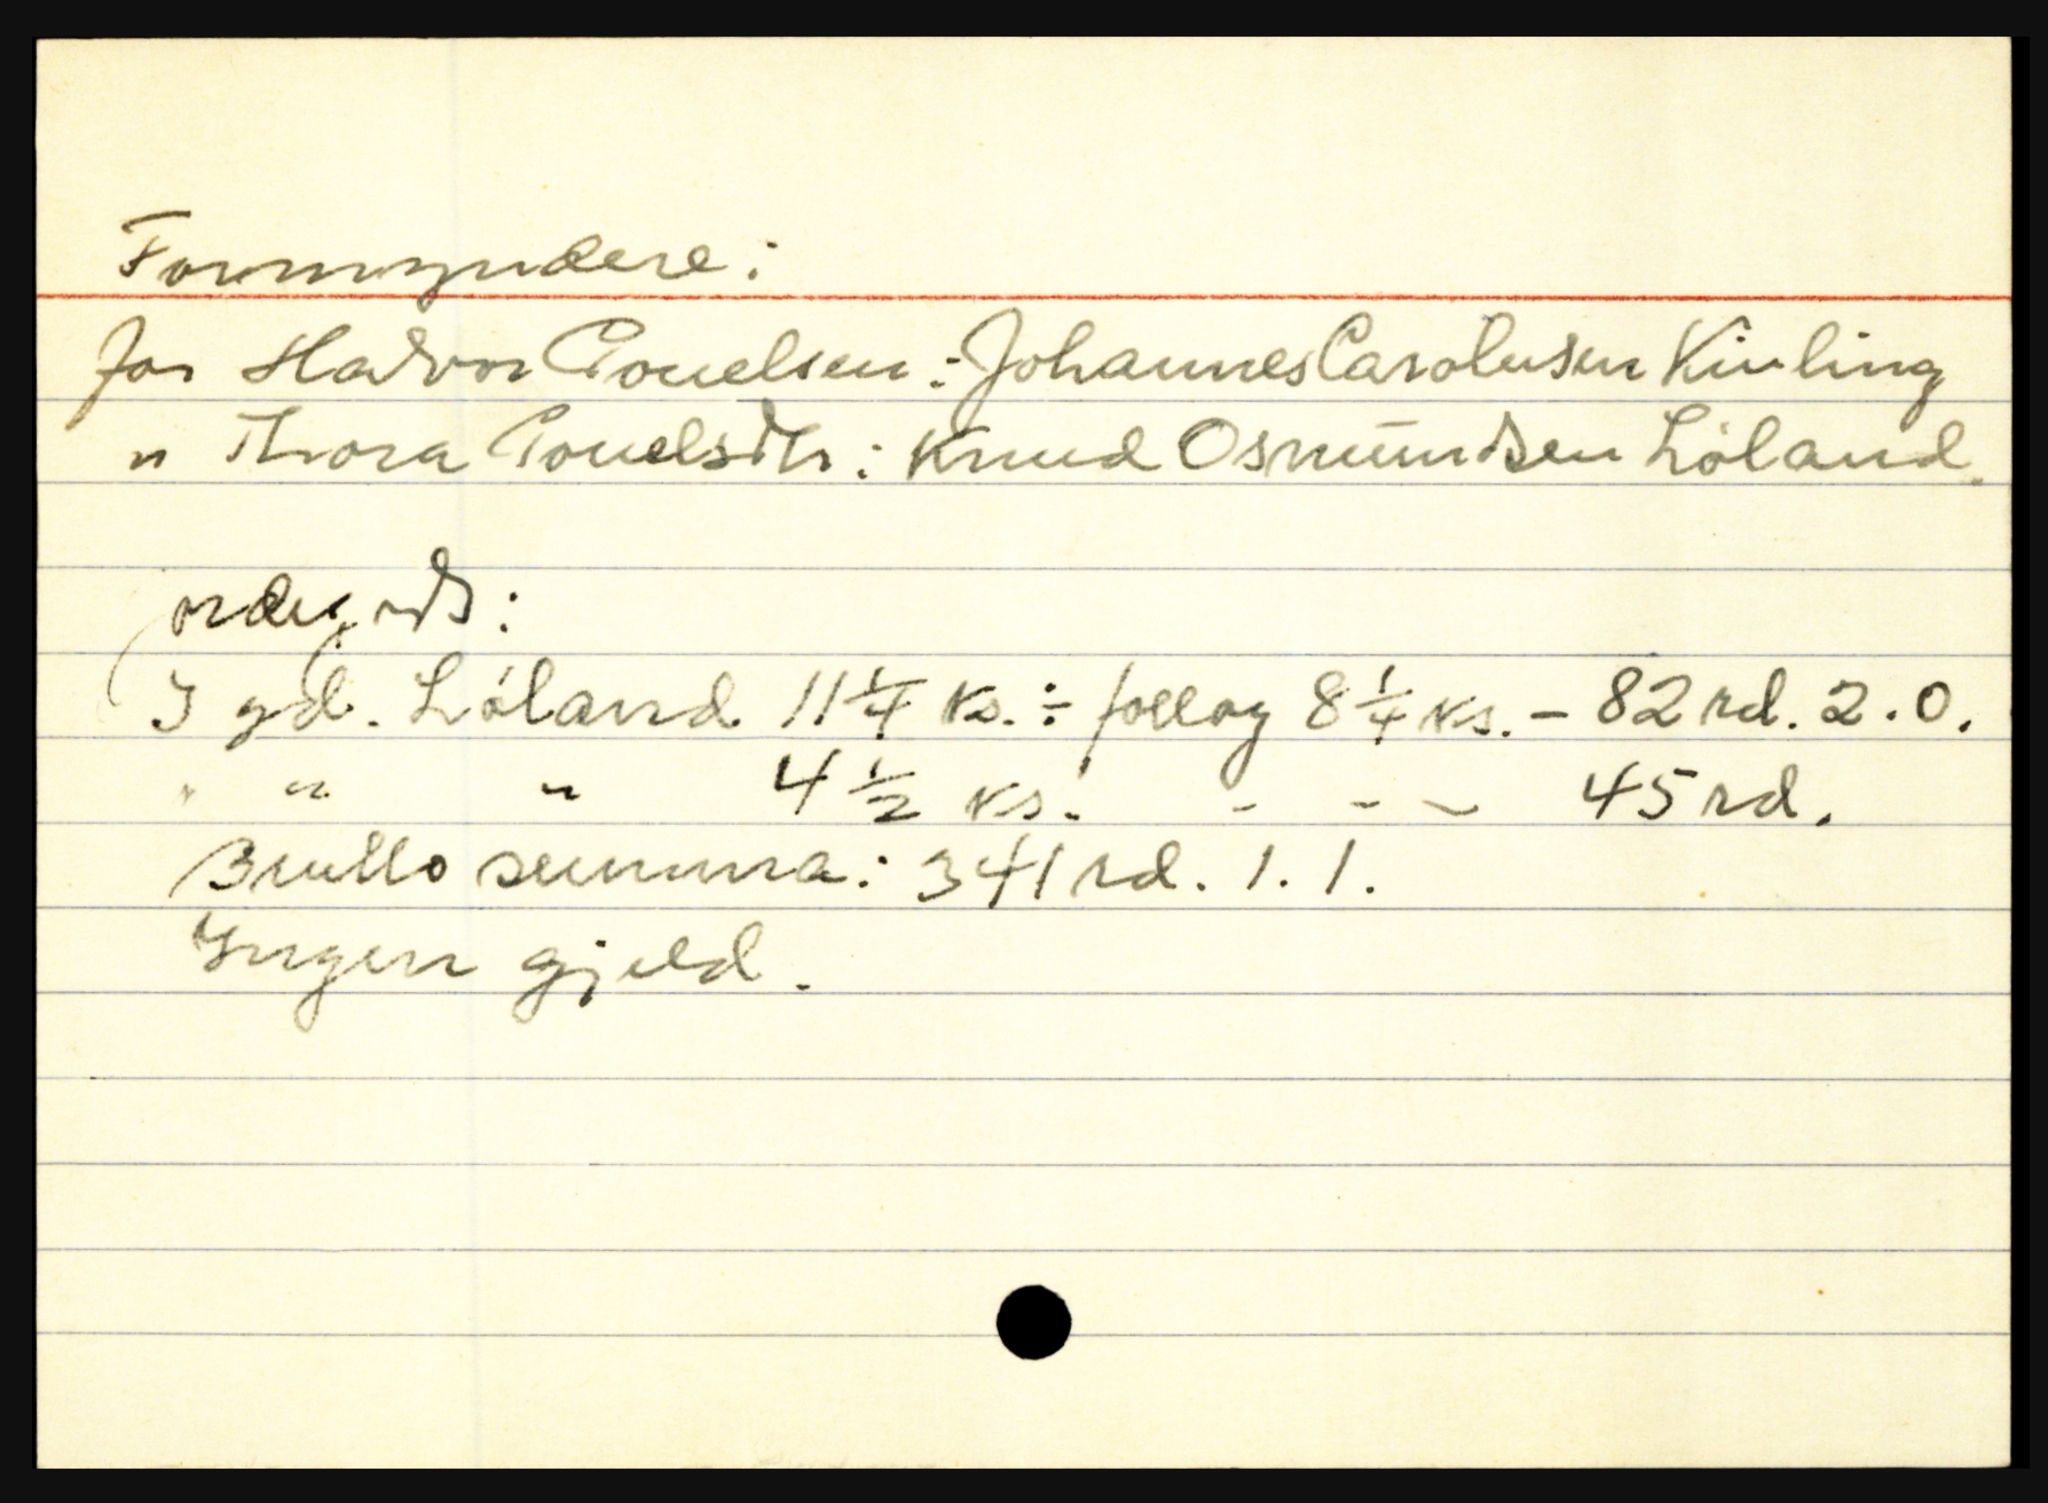 Formyndere:
for Halvor Pouelsen: Johannes Carolusen Kivling
" Thora Pouelsdtr: Knud Osmundsen Löland.
Jordegods:
I gd. Löland 11 1/4 ks. ÷ follog 8 1/4 ks. - 82 rd. 2.0.
" " " 4 1/2 ks. - - - 45 rd.
Brutto summa: 341 rd. 1.1.
Ingen gjeld.